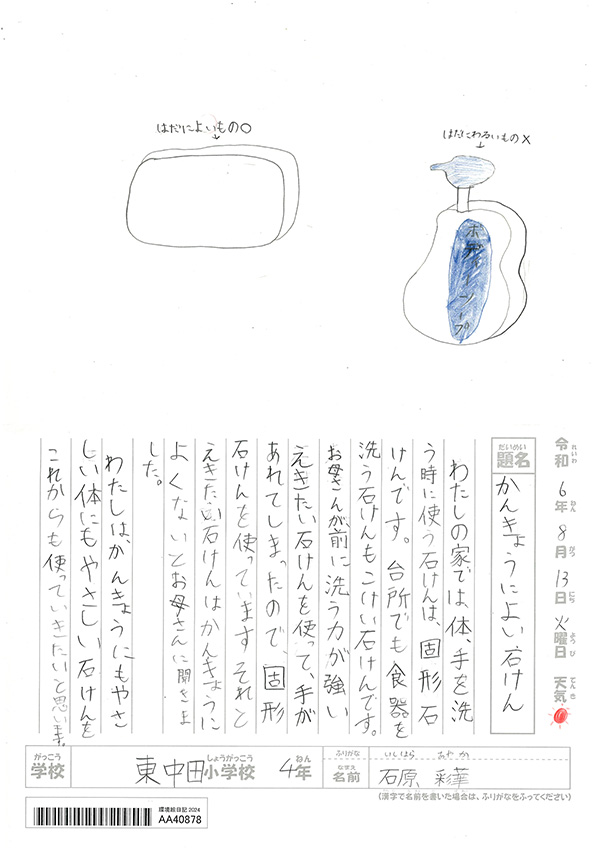 はだによいもの○
↓
はだにわるいもの×
↓
ボディーソープ
令和6年8月13日火曜日 天気
れいわ ねん がつ にち ようび てんき
だいめい
題名
かんきょうによい石けん
わたしの家では、体、手を洗
う時に使う石けんは、固形石
けんです。台所でも食器を
洗う石けんもこけい石けんです。
お母さんが、前に洗う力が強い
えきたい石けんを使って、手が
あれてしまったので、固形
石けんを使っています それと
えきたい石けんはかんきょうに
よくないとお母さんに聞きま
した。
わたしは、かんきょうにもやさ
しい体にもやさしい石けんを
これからも使っていきたいと思います。
がっこう
学校
東中田小学校 4年
しょうがっこう ねん
ふりがな いしはら あやか
なまえ
名前 石原 彩華
(漢字で名前を書いた場合は、ふりがなをふってください)
環境絵日記2024
AA40878